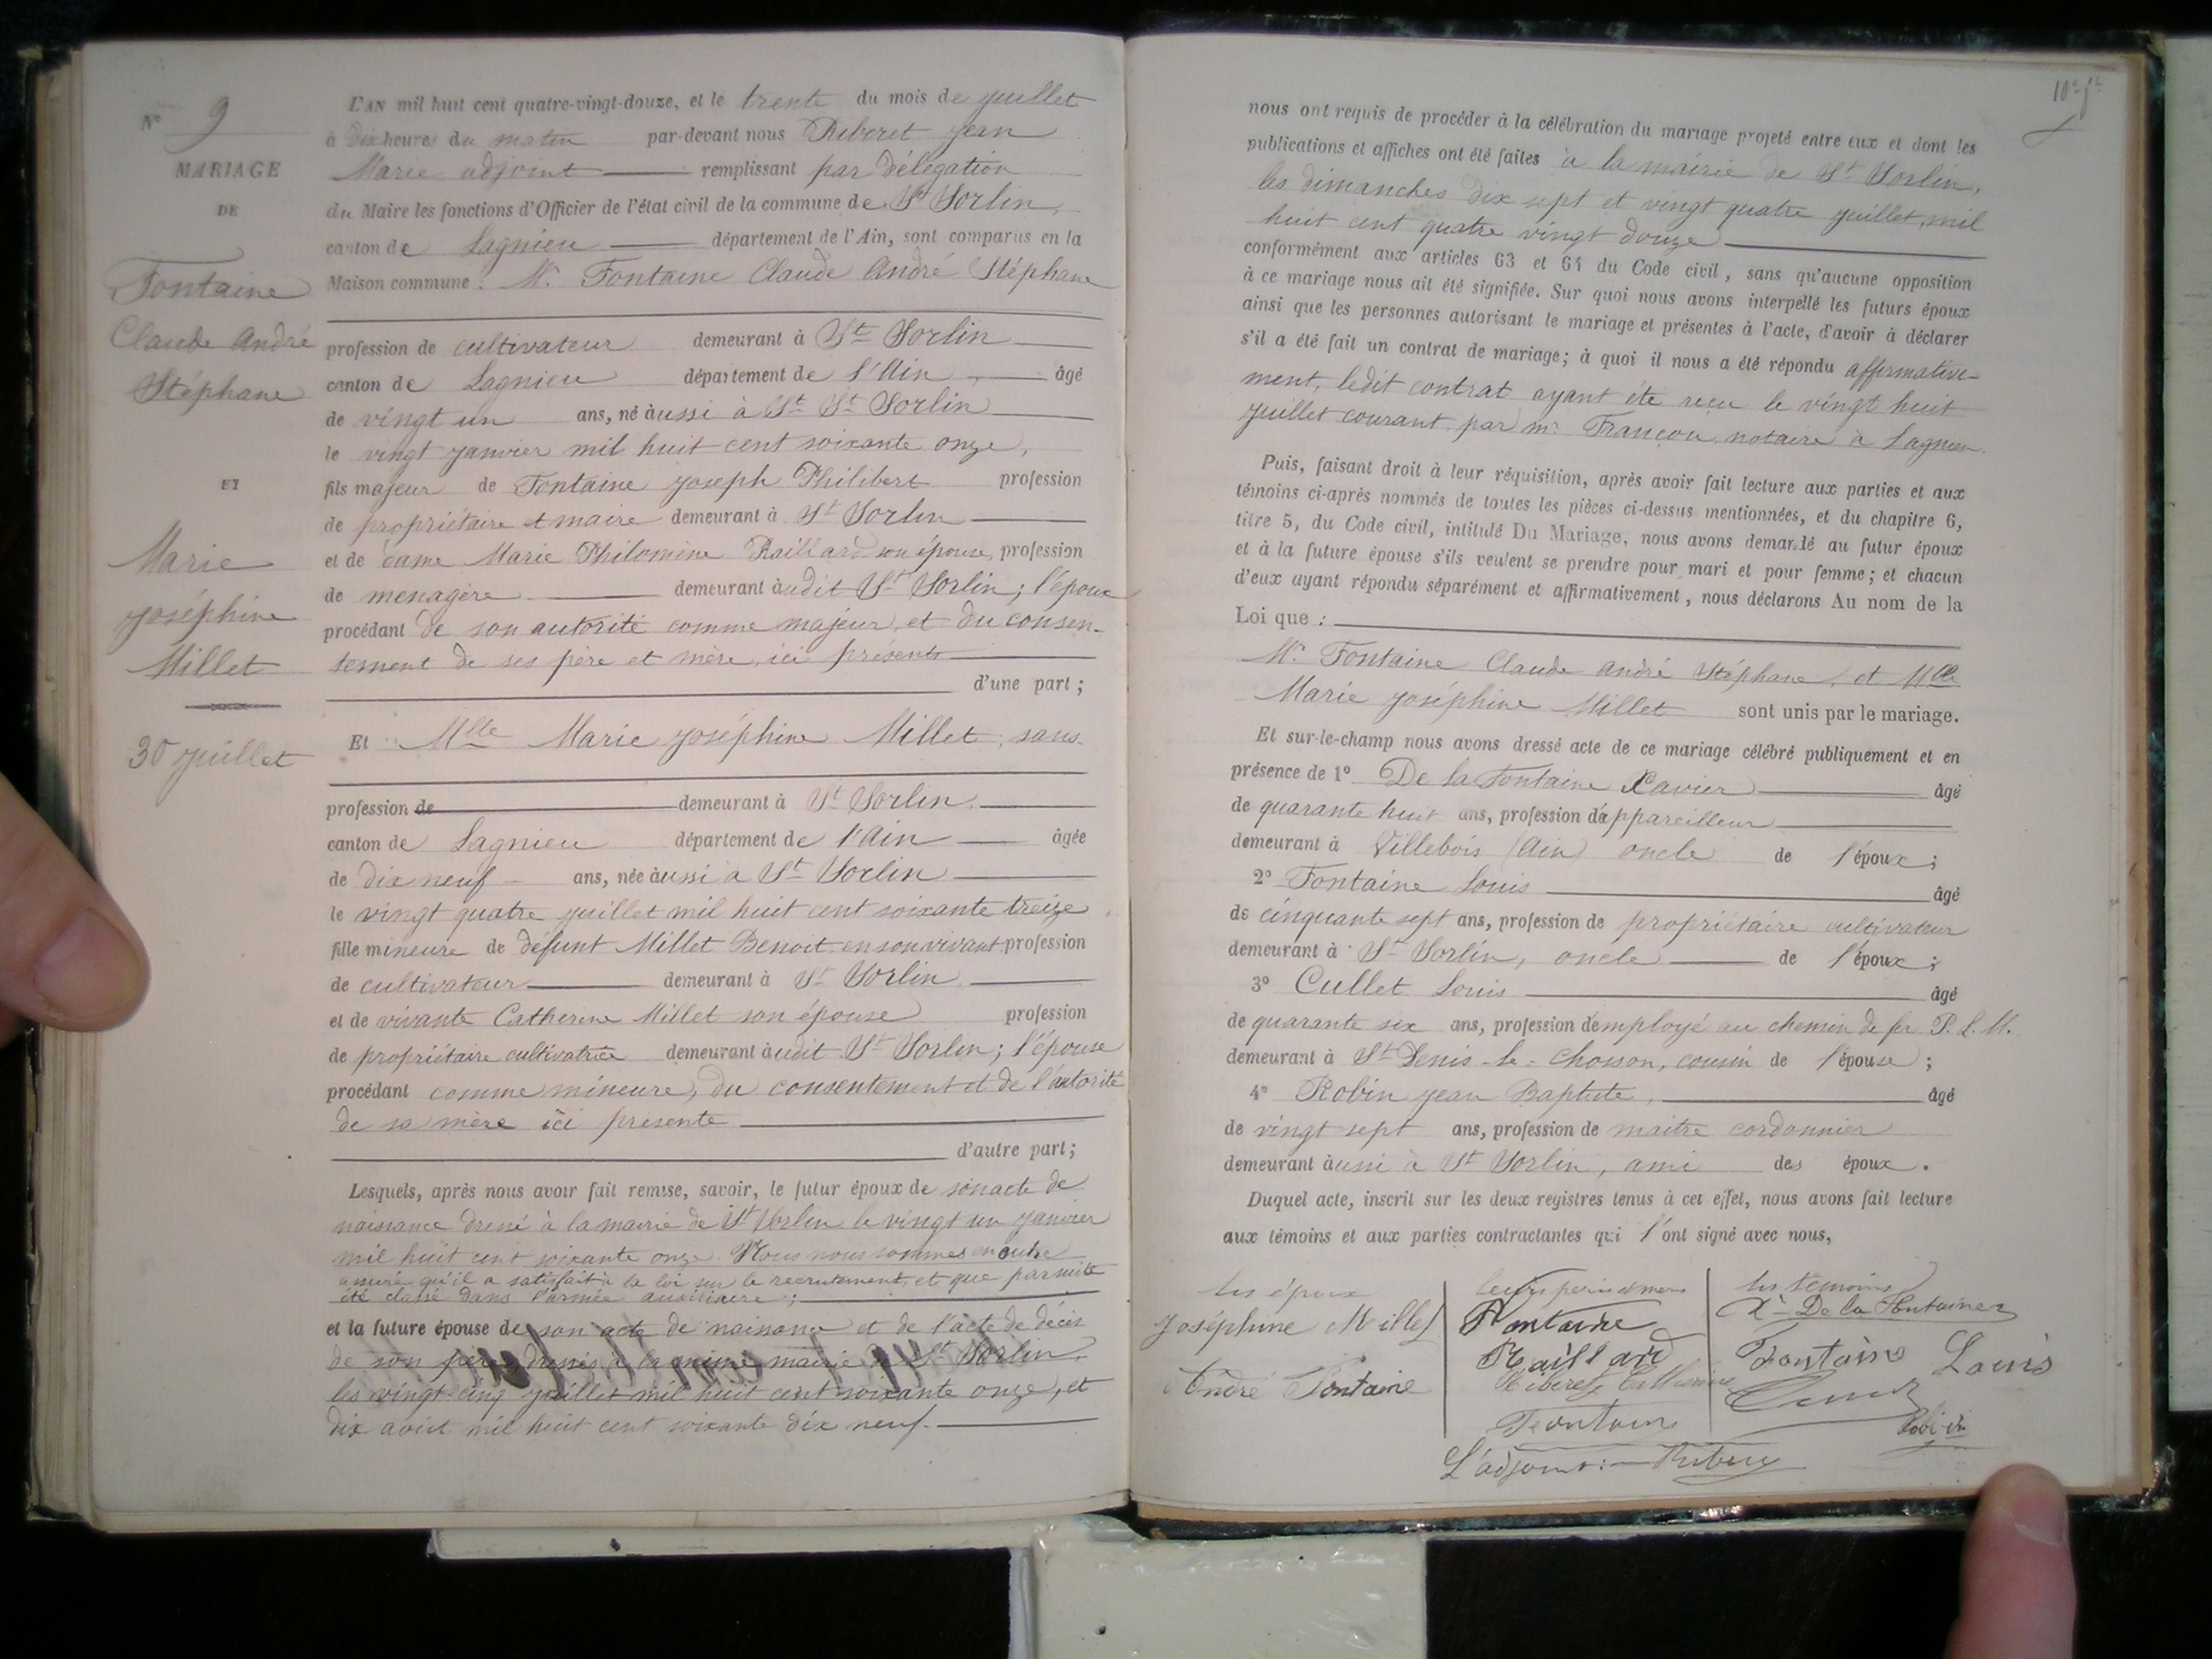 N° 9
MARIAGE
DE
Fontaine
Claude André
Stéphane
ET
Marie
Joséphine
Millet
30 juillet
L'AN mil huit cent quatre-vingt-douze, et le trente du mois de juillet
à dix heures du matin par-devant nous Riberet Jean
Marie adjoint remplissant par délégation
du Maire les fonctions d'Officier de l'état civil de la commune de St Sorlin,
canton de Lagnieu département de l'Ain, sont comparus en la
Maison commune : Mr Fontaine Claude André Stéphane
profession de cultivateur demeurant à St Sorlin
canton de Lagnieu département de l'Ain, âgé
de vingt un ans, né aussi à St St Sorlin
le vingt janvier mil huit cent soixante onze,
fils majeur de Fontaine Joseph Philibert profession
de propriétaire et maire demeurant à St Sorlin
et de dame Marie Philomène Raillard son épouse, profession
de menagère demeurant audit St Sorlin ; l'époux
procédant de son autorité comme majeur, et du consen-
tement de ses père et mère, ici présents
d'une part ;
Et Mlle Marie Joséphine Millet, sans
profession de demeurant à St Sorlin.
canton de Lagnieu département de l'Ain âgée
de dix neuf ans, née aussi a St Sorlin
le vingt quatre juillet mil huit cent soixante treize
fille mineure de défunt Millet Benoit en son vivant profession
de cultivateur demeurant à St Sorlin
et de vivante Catherine Millet son épouse profession
de propriétaire cultivatrice demeurant audit St Sorlin ; l'épouse
procédant comme mineure, du consentement et de l'autorité
de sa mère ici présente
d'autre part ;
Lesquels, après nous avoir fait remise, savoir, le futur époux de son acte de
naissance dressé à la mairie de St Sorlin le vingt un janvier
mil huit cent soixante onze. Nous nous sommes en outre
assuré qu'il a satisfait à la loi sur le recrutement, et que par suite
été classé dans l'armée auxiliaire ;
et la future épouse de son acte de naissance et de l'acte de décès
de son père, dressés à la même mairie St Sorlin,
les vingt-cinq juillet mil huit cent soixante onze, et
dix août mil huit cent soixante dix neuf.
nous ont requis de procéder à la célébration du mariage projeté entre eux et dont les
publications et affiches ont été faites à la mairie de St Sorlin,
les dimanches dix sept et vingt quatre juillet, mil
huit cent quatre vingt douze
conformément aux articles 63 et 64 du Code civil, sans qu'aucune opposition
à ce mariage nous ait été signifiée. Sur quoi nous avons interpellé les futurs époux
ainsi que les personnes autorisant le mariage et présentes à l'acte, d'avoir à déclarer
s'il a été fait un contrat de mariage ; à quoi il nous a été répondu affirmative-
ment, ledit contrat ayant été reçu le vingt huit
juillet courant par me Françou notaire à Lagnieu.
Puis, faisant droit à leur réquisition, après avoir fait lecture aux parties et aux
témoins ci-après nommés de toutes les pièces ci-dessus mentionnées, et du chapitre 6,
titre 5, du Code civil, intitulé Du Mariage, nous avons demandé au futur époux
et à la future épouse s'ils veulent se prendre pour mari et pour femme ; et chacun
d'eux ayant répondu séparément et affirmativement, nous déclarons Au nom de la
Loi que :
Mr Fontaine Claude André Stéphane, et Mlle
Marie Joséphine Millet sont unis par le mariage.
Et sur-le-champ nous avons dressé acte de ce mariage célébré publiquement et en
présence de 1° De la Fontaine Xavier âgé
de quarante huit ans, profession d'appareilleur
demeurant à Villebois (Ain) oncle de l'époux ;
2° Fontaine Louis âgé
de cinquante sept ans, profession de propriétaire cultivateur
demeurant à St Sorlin, oncle de l'époux ;
3° Cullet Louis âgé
de quarante six ans, profession d'employé au chemin de fer P. L. M.
demeurant à St Denis-le-Chosson, cousin de l'épouse ;
4° Robin Jean Baptiste, âgé
de vingt sept ans, profession de maître cordonnier
demeurant aussi à St Sorlin, ami des époux.
Duquel acte, inscrit sur les deux registres tenus à cet effet, nous avons fait lecture
aux témoins et aux parties contractantes qui l'ont signé avec nous,
les époux
Joséphine Millet
André Fontaine
leurs pères et mères
Fontaine
Raillard
Fontaine
les témoins
Xr De la Fontaine
Fontaine Louis
Cullet
Robin
L'adjoint : Riberet